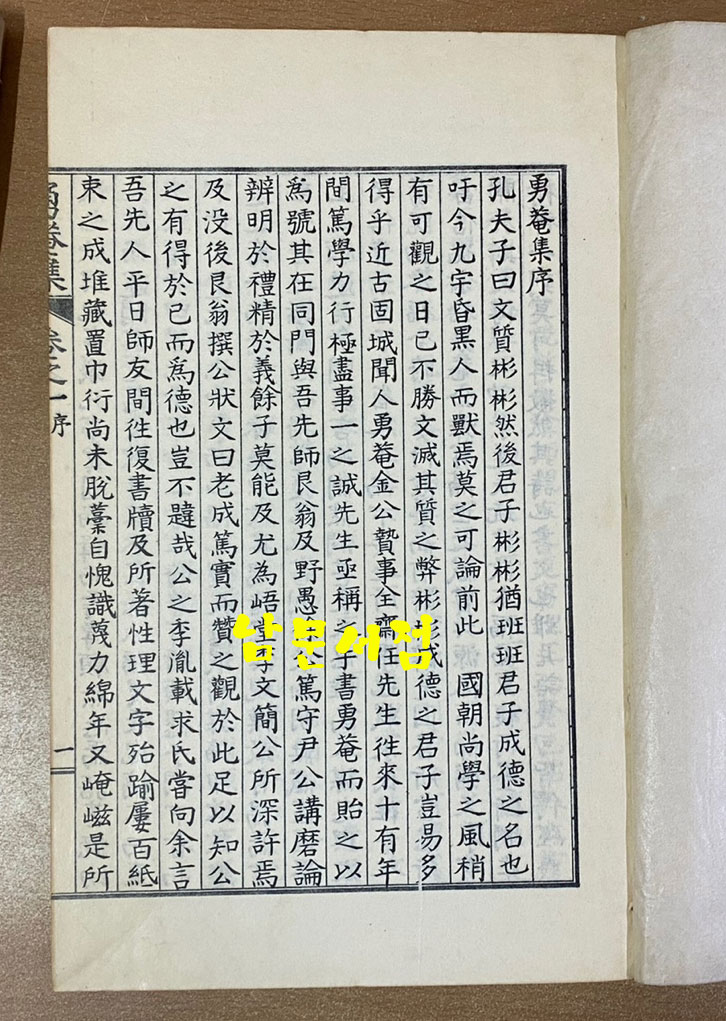 勇菴集序
孔夫子曰文質彬彬然後君子彬彬猶班班君子成德之名也
吁今九宇昏黑人而獸焉莫之可論前此 國朝尚學之風稍
有可觀之日已不勝文滅其質之弊彬彬成德之君子豈易多
得乎近古固城聞人勇菴金公贄事全齋任先生往來十有年
間篤學力行極盡事一之誠先生亟稱之手書勇菴而貽之以
爲號其在同門與吾先師艮翁及野愚公篤守尹公講磨論
辨明於禮精於義餘子莫能及尤為峿堂李文簡公所深許焉
及没後艮翁撰公狀文曰老成篤實而贊之觀於此足以知公
之有得於己而爲德也豈不韙哉公之季胤載求氏嘗向余言
吾先人平日師友間徃復書牘及所著性理文字殆踰屢百紙
束之成堆藏置巾衍尚未脫藁自愧識蔑力綿年又崦嵫是所
勇菴集 卷之一 序 一
남문서점